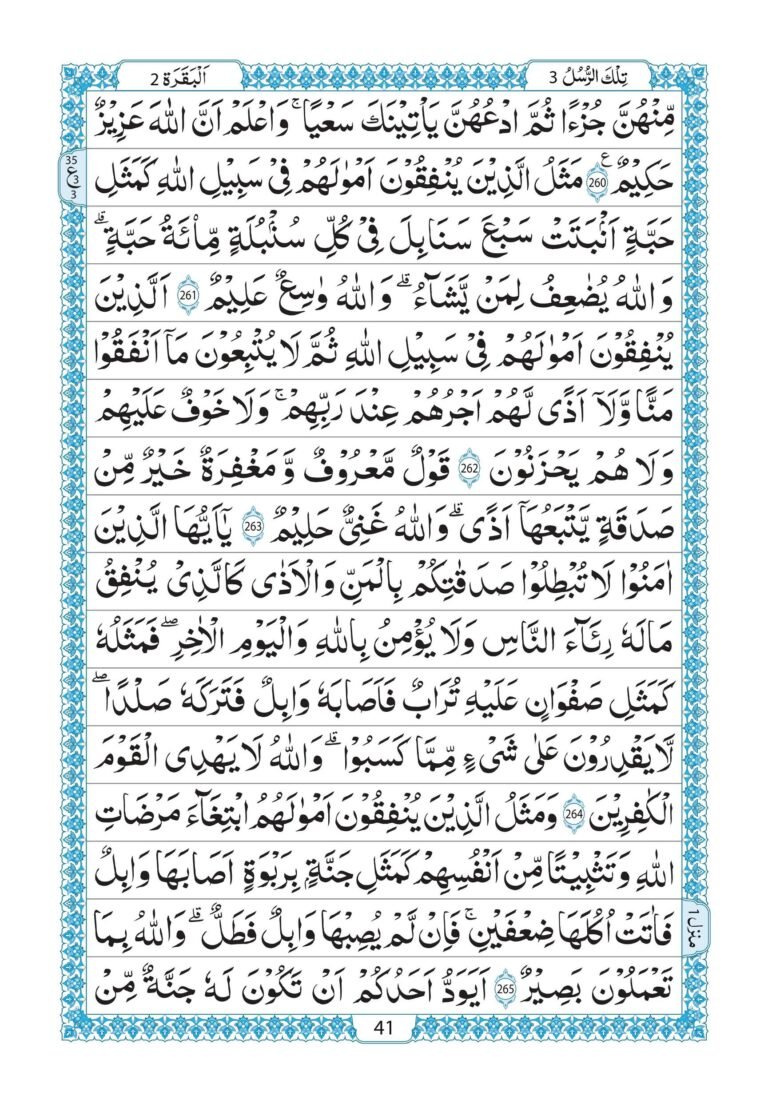 تِلْكَ الرُّسُلُ 3
اَلْبَقَرَة 2
مِّنْهُنَّ جُزْءًا ثُمَّ ادْعُهُنَّ يَاْتِيْنَكَ سَعْيًا ؕ وَاعْلَمْ اَنَّ اللّٰهَ عَزِيْزٌ
حَكِيْمٌ ࣖ 260 مَثَلُ الَّذِيْنَ يُنْفِقُوْنَ اَمْوٰلَهُمْ فِيْ سَبِيْلِ اللّٰهِ كَمَثَلِ
35 ع 3 3
حَبَّةٍ اَنْۢبَتَتْ سَبْعَ سَنَابِلَ فِيْ كُلِّ سُنْۢبُلَةٍ مِّائَةُ حَبَّةٍ ؕ
وَاللّٰهُ يُضٰعِفُ لِمَنْ يَّشَآءُ ؕ وَاللّٰهُ وٰسِعٌ عَلِيْمٌ 261 اَلَّذِيْنَ
يُنْفِقُوْنَ اَمْوٰلَهُمْ فِيْ سَبِيْلِ اللّٰهِ ثُمَّ لَا يُتْبِعُوْنَ مَآ اَنْفَقُوْا
مَنًّا وَّلَآ اَذًى لَّهُمْ اَجْرُهُمْ عِنْدَ رَبِّهِمْ ۚ وَلَا خَوْفٌ عَلَيْهِمْ
وَلَا هُمْ يَحْزَنُوْنَ 262 قَوْلٌ مَّعْرُوْفٌ وَّمَغْفِرَةٌ خَيْرٌ مِّنْ
صَدَقَةٍ يَّتْبَعُهَآ اَذًى ؕ وَاللّٰهُ غَنِيٌّ حَلِيْمٌ 263 يٰٓاَيُّهَا الَّذِيْنَ
اٰمَنُوْا لَا تُبْطِلُوْا صَدَقٰتِكُمْ بِالْمَنِّ وَالْاَذٰى كَالَّذِيْ يُنْفِقُ
مَالَهٗ رِئَآءَ النَّاسِ وَلَا يُؤْمِنُ بِاللّٰهِ وَالْيَوْمِ الْاٰخِرِ ؕ فَمَثَلُهٗ
كَمَثَلِ صَفْوَانٍ عَلَيْهِ تُرَابٌ فَاَصَابَهٗ وَابِلٌ فَتَرَكَهٗ صَلْدًا ؕ
لَّا يَقْدِرُوْنَ عَلٰى شَيْءٍ مِّمَّا كَسَبُوْا ؕ وَاللّٰهُ لَا يَهْدِى الْقَوْمَ
الْكٰفِرِيْنَ 264 وَمَثَلُ الَّذِيْنَ يُنْفِقُوْنَ اَمْوٰلَهُمُ ابْتِغَآءَ مَرْضَاتِ
اللّٰهِ وَتَثْبِيْتًا مِّنْ اَنْفُسِهِمْ كَمَثَلِ جَنَّةٍۭ بِرَبْوَةٍ اَصَابَهَا وَابِلٌ
فَاٰتَتْ اُكُلَهَا ضِعْفَيْنِ ۚ فَاِنْ لَّمْ يُصِبْهَا وَابِلٌ فَطَلٌّ ؕ وَاللّٰهُ بِمَا
منزل 1
تَعْمَلُوْنَ بَصِيْرٌ 265 اَيَوَدُّ اَحَدُكُمْ اَنْ تَكُوْنَ لَهٗ جَنَّةٌ مِّنْ
41